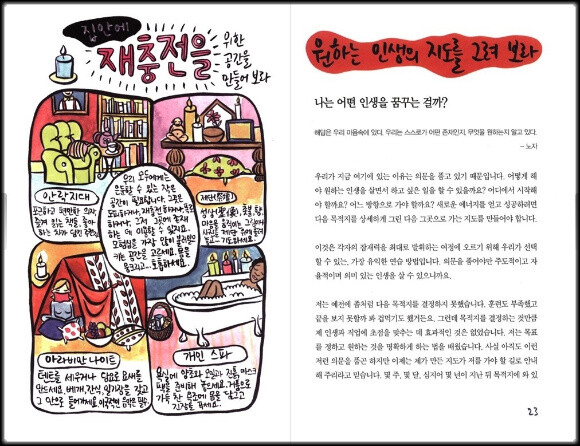 집안에
재충전을
위한
공간을
만들어 보라
안락지대
우리 모두에게는
은둔할 수 있는 작은
공간이 필요합니다. 그곳은
그저 그곳에 존재
하는 데 이용할 수 있지요.
모험심을 가장 많이 불러일으
키는 공간을 고르세요. 몸을
아라비안 나이트
텐트를 세우거나 담요로 요새를
만드세요. 베개, 간식, 일기장을 갖고
그 안으로 들어가세요. 이국적인 음악은 필수.
개인 스파
욕실에 양초와 오일과 진흙 마스크
팩을 준비해 놓으세요. 거품으로
가득 찬 욕조에 몸을 담그고
긴장을 푸세요.
원하는 인생의 지도를 그려 보라
나는 어떤 인생을 꿈꾸는 걸까?
해답은 우리 마음속에 있다. 우리는 스스로가 어떤 존재인지, 무엇을 원하는지 알고 있다.
– 노자
우리가 지금 여기에 있는 이유는 의문을 품고 있기 때문입니다. 어떻게 해
야 원하는 인생을 살면서 하고 싶은 일을 할 수 있을까요? 어디에서 시작해
야 할까요? 어느 방향으로 가야 할까요? 새로운 에너지를 얻고 성공하려면
다음 목적지를 상세하게 그린 다음 그곳으로 가는 지도를 만들어야 합니다.
이것은 각자의 잠재력을 최대로 발휘하는 여정에 오르기 위해 우리가 선택
할 수 있는, 가장 유익한 연습 방법입니다. 의문을 품어야만 주도적이고 자
율적이며 의미 있는 인생을 살 수 있으니까요.
저는 예전에 좀처럼 다음 목적지를 결정하지 못했습니다. 훈련도 부족했고
끝을 보지 못할까 봐 겁먹기도 했거든요. 그런데 목적지를 결정하는 것만큼
제 인생과 직업에 초점을 맞추는 데 효과적인 것은 없었습니다. 저는 목표
를 정하고 원하는 것을 명확하게 하는 법을 배웠습니다. 사실 아직도 이런
저런 의문을 품곤 하지만 이제는 제가 만든 지도가 저를 가야 할 길로 안내
해 주리라고 믿습니다. 몇 주, 몇 달, 심지어 몇 년이 지난 뒤 목적지에 와 있
23